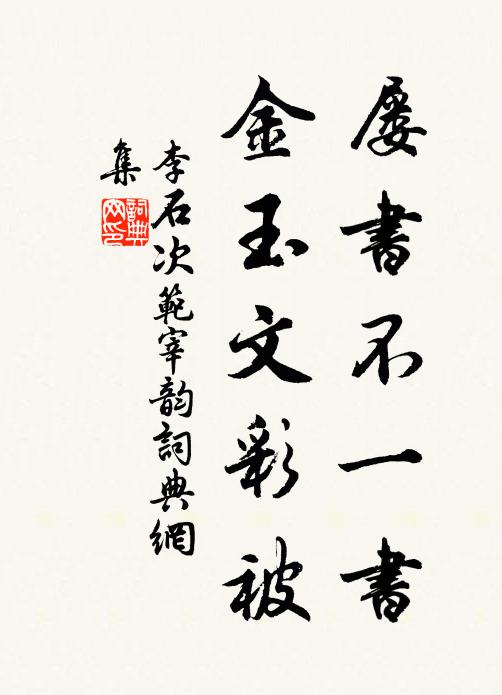 屢書不一書
金玉文彩被
李石次範宰韵詞典網
集
詞典網印